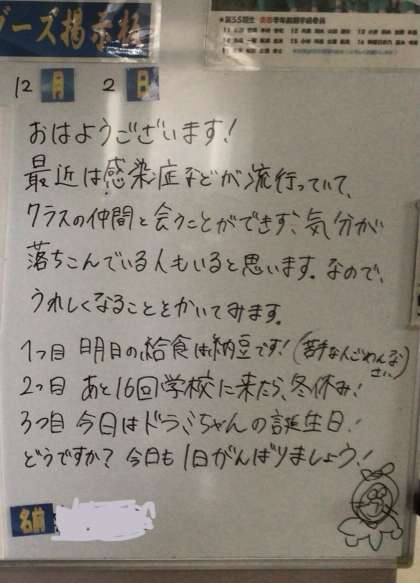 ブーズ掲示板
12月 2日
おはようございます!
最近は感染症などが流行っていて、
クラスの仲間と会うことができず、気分が
落ちこんでいる人もいると思います。なので、
うれしくなることをかいてみます。
1つ目 明日の給食は納豆です!(苦手な人ごめんなさい)
2つ目 あと16回学校に来たら、冬休み!
3つ目 今日はドラミちゃんの誕生日!
どうですか?今日も1日がんばりましょう!
名前